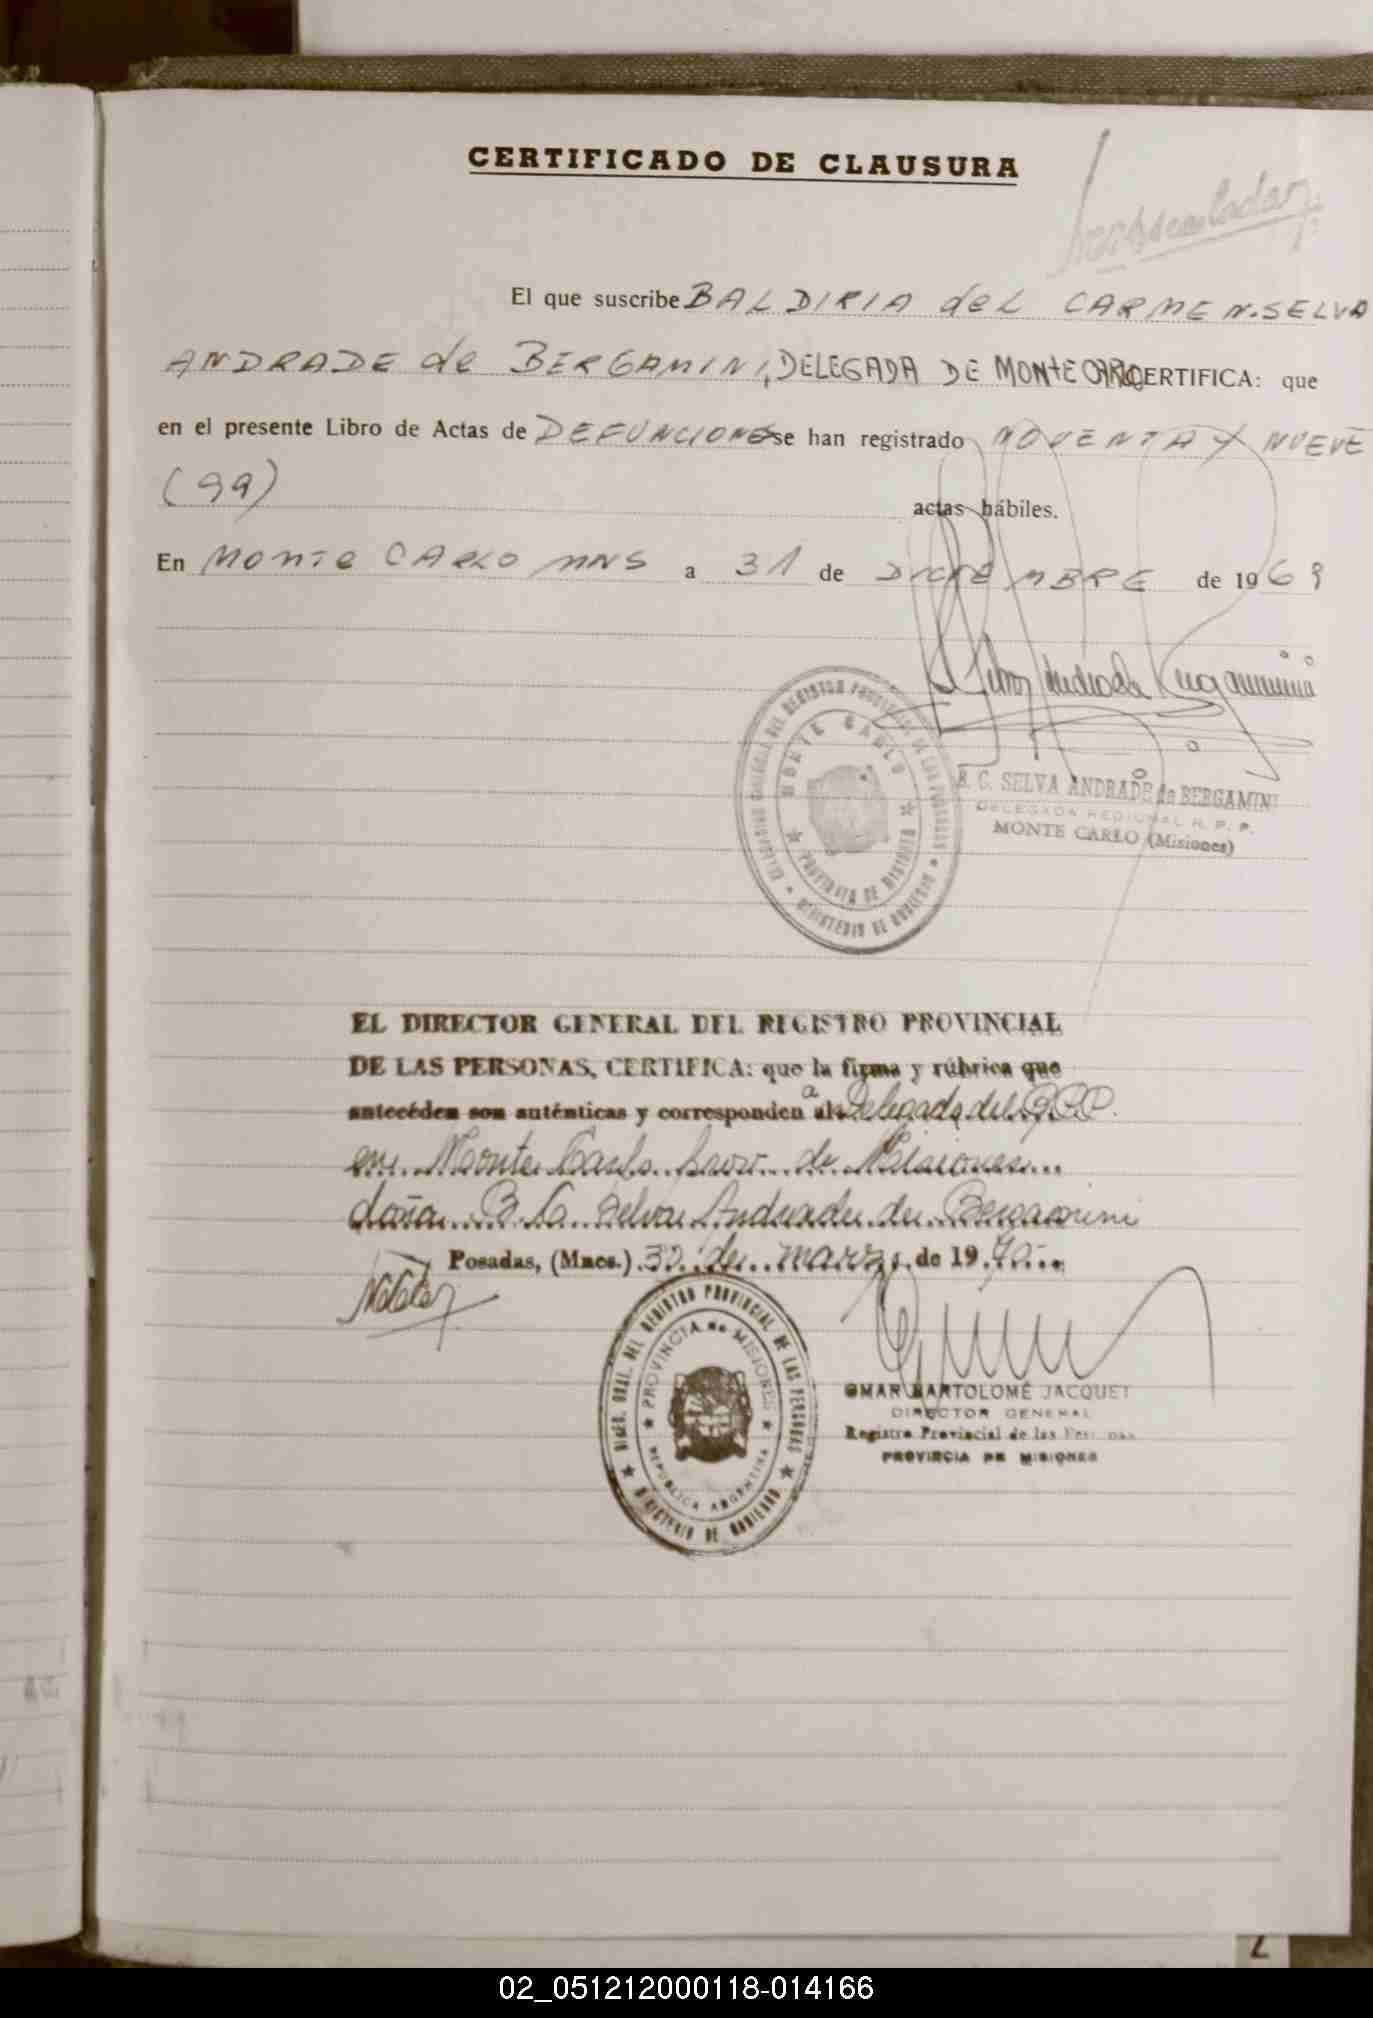 CERTIFICADO DE CLAUSURA
El que suscribe BALDIRIA del CARMEN SELVA
ANDRADE de BERGAMINI, DELEGADA DE MONTE CARLO CERTIFICA: que
en el presente Libro de Actas de DEFUNCIONES se han registrado NOVENTA Y NUEVE
(99) actas hábiles.
En Monte CARLO MNS a 31 de DICIEMBRE de 1969
DIRECCION GENERAL DEL REGISTRO PROVINCIAL DE LAS PERSONAS
MONTE CARLO
PROVINCIA DE MISIONES
MINISTERIO DE GOBIERNO
B. C. SELVA ANDRADE de BERGAMINI
DELEGADA REGIONAL R. P. P.
MONTE CARLO (Misiones)
EL DIRECTOR GENERAL DEL REGISTRO PROVINCIAL
DE LAS PERSONAS, CERTIFICA: que la firma y rúbrica que
anteceden son auténticas y corresponden a la Delegada del RPP.
en Monte Carlo de Misiones
doña B. C. Selva Andrade de Bergamini
Posadas, (Mnes.) de marzo de 1970
DIREC. GRAL. DEL REGISTRO PROVINCIAL DE LAS PERSONAS
PROVINCIA de MISIONES
REPUBLICA ARGENTINA
MINISTERIO DE GOBIERNO
OMAR BARTOLOMÉ JACQUET
DIRECTOR GENERAL
Registro Provincial de las Personas
PROVINCIA DE MISIONES
02_051212000118-014166